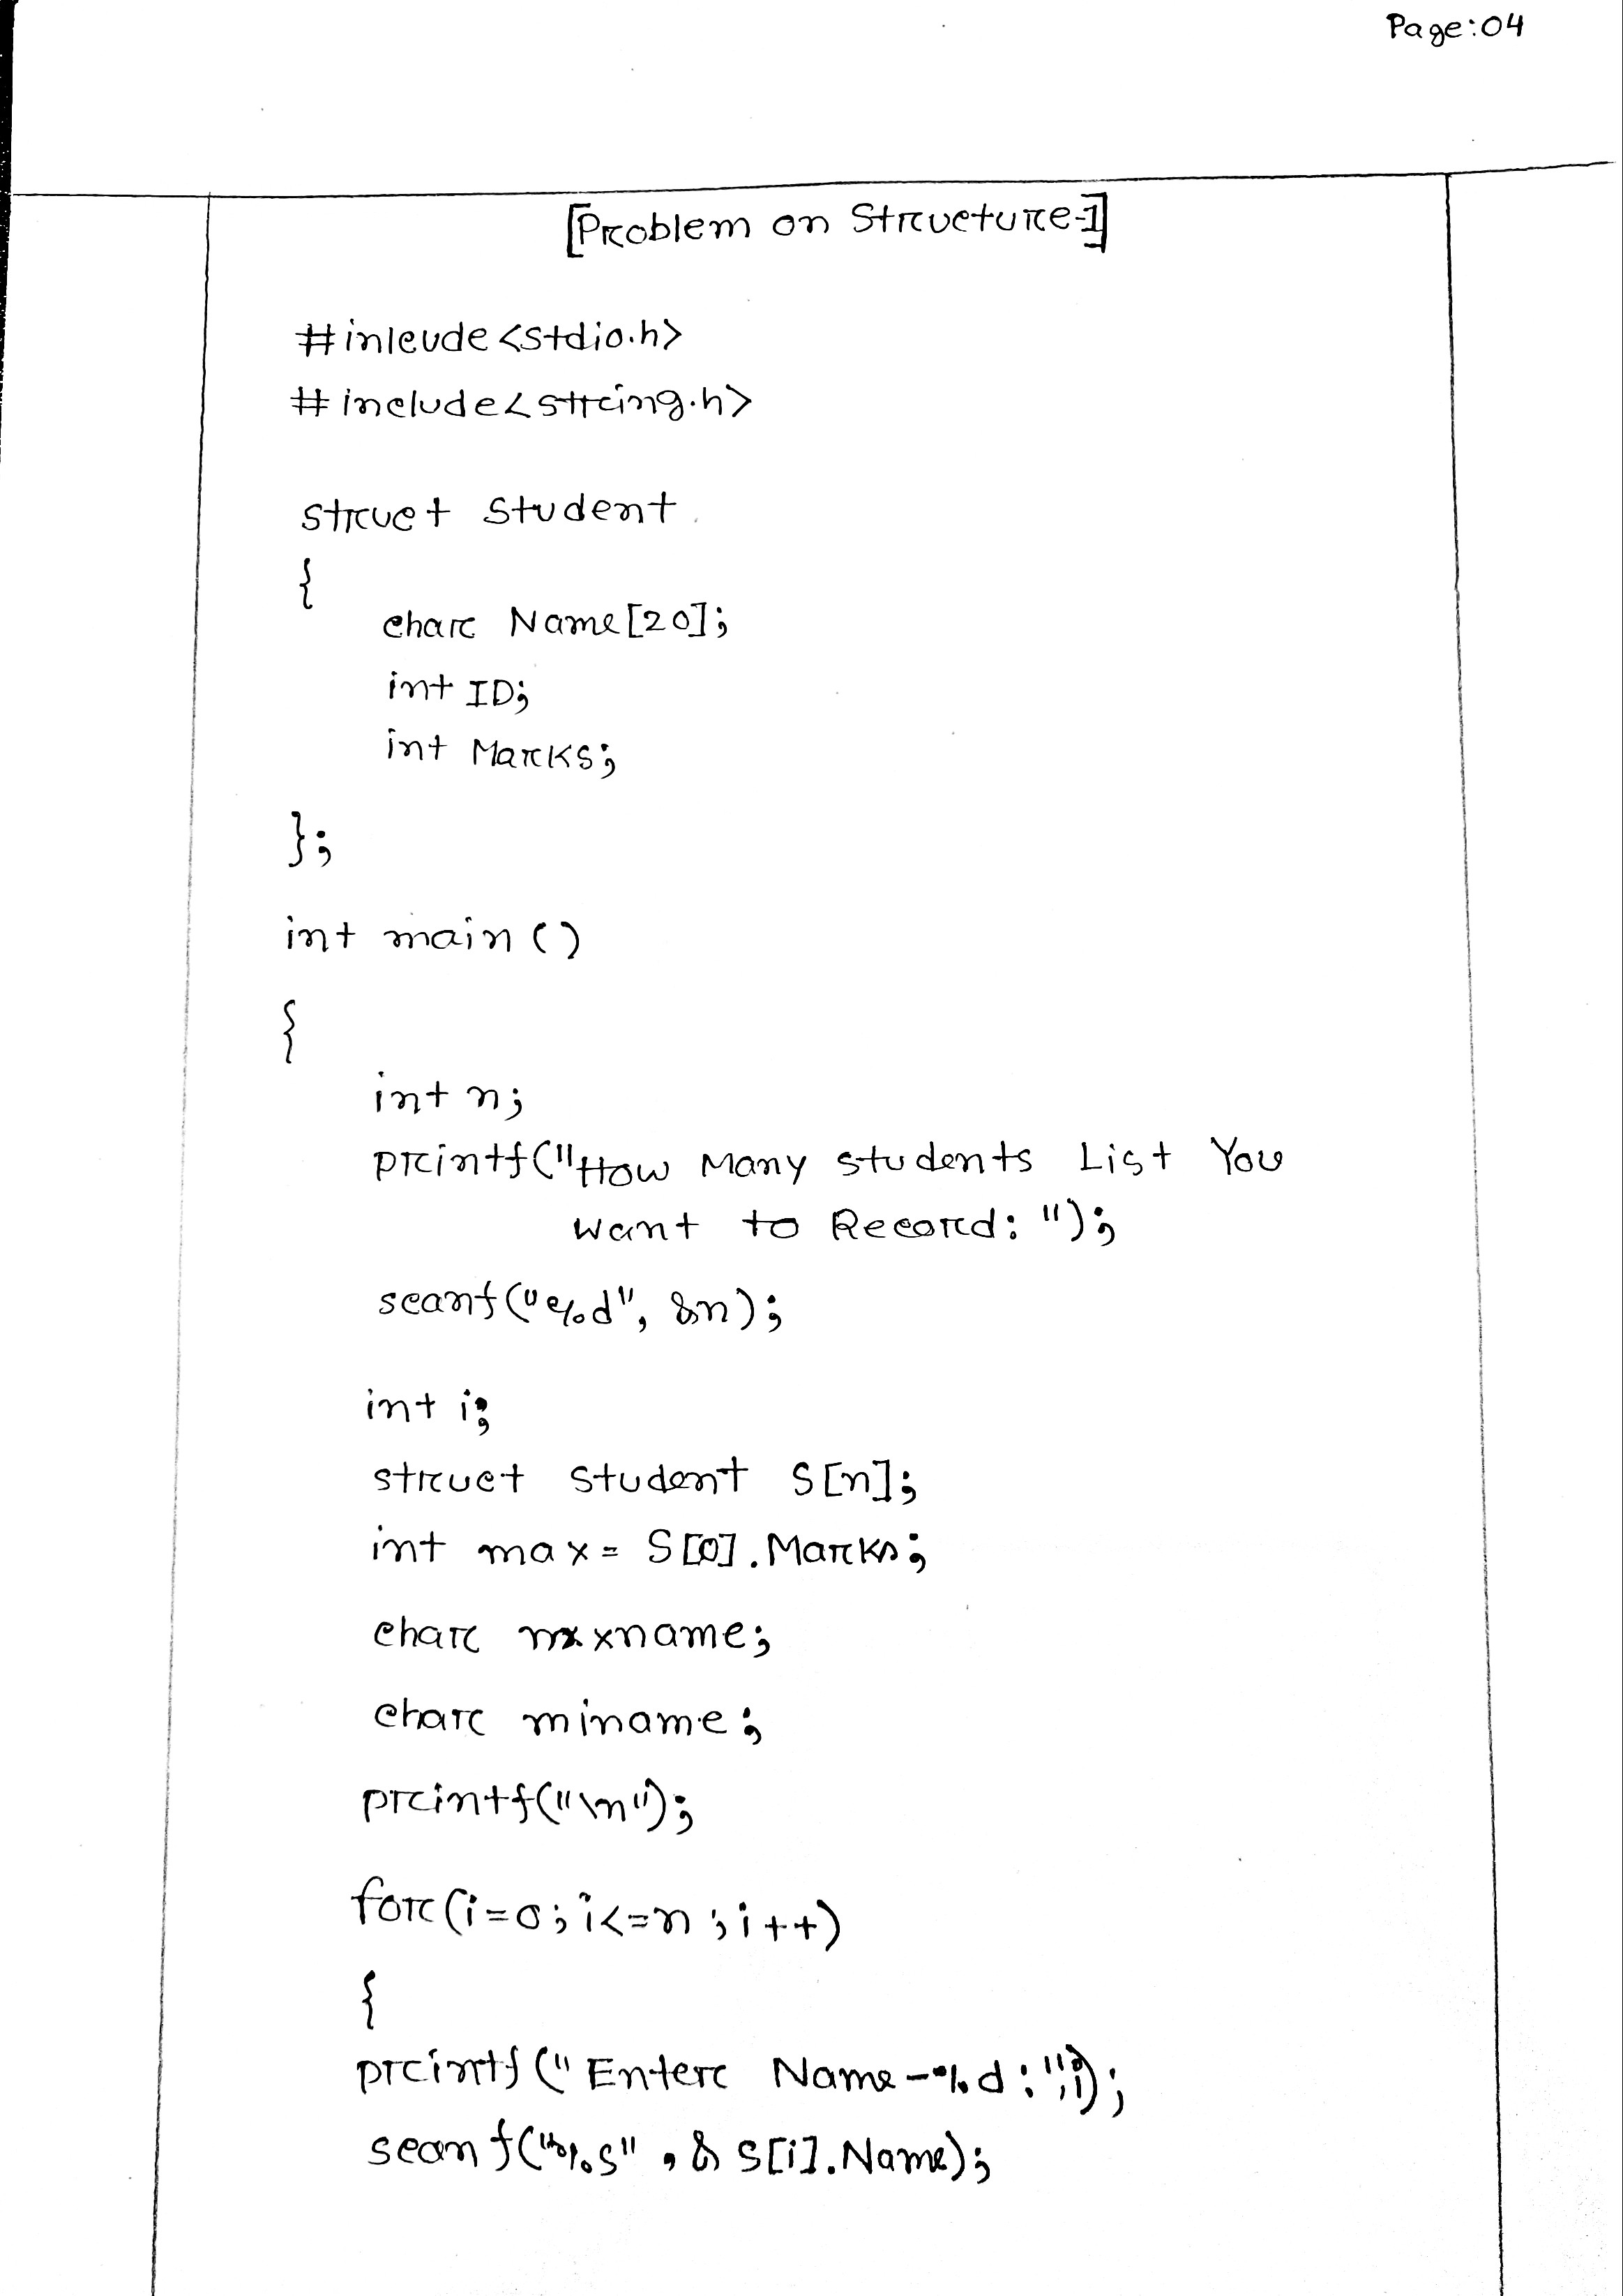 Page:04
[Problem on Structure-1]
#inlcude<stdio.h>
#include<string.h>
struct Student
{
char Name[20];
int ID;
int Marks;
};
int main()
{
int n;
printf("How Many students List You
want to Record: ");
scanf("%d", &n);
int i;
struct Student S[n];
int max = S[0].Marks;
char mxxname;
char miname;
printf("\n");
for(i=0; i<=n ; i++)
{
printf("Enter Name-%d:",i);
scanf("%s", & S[i].Name);